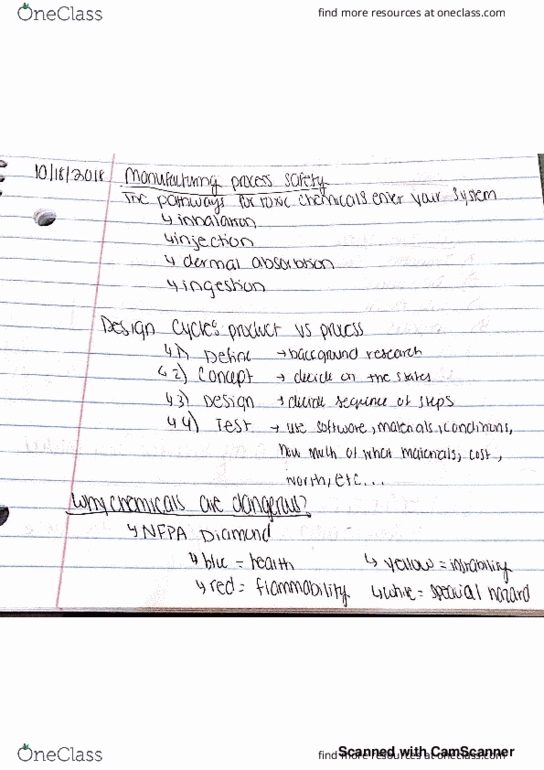 OneClass
find more resources at oneclass.com
10/18/2018 Manufacturing process safety
The pathways for toxic chemicals enter your system
↳ inhalation
↳ injection
↳ dermal absorbtion
↳ ingestion
Design Cycle: product vs process
↳ 1) Define → background research
↳ 2) Concept → decide on the states
↳ 3) Design → decide sequence of steps
↳ 4) Test → use software, materials, conditions,
how much of what materials, cost,
worth, etc...
Why chemicals are dangerous?
↳ NFPA Diamond
↳ blue = health ↳ yellow = instability
↳ red = flammability ↳ white = special hazard
OneClass
find more resources at oneclass.com
Scanned with CamScanner